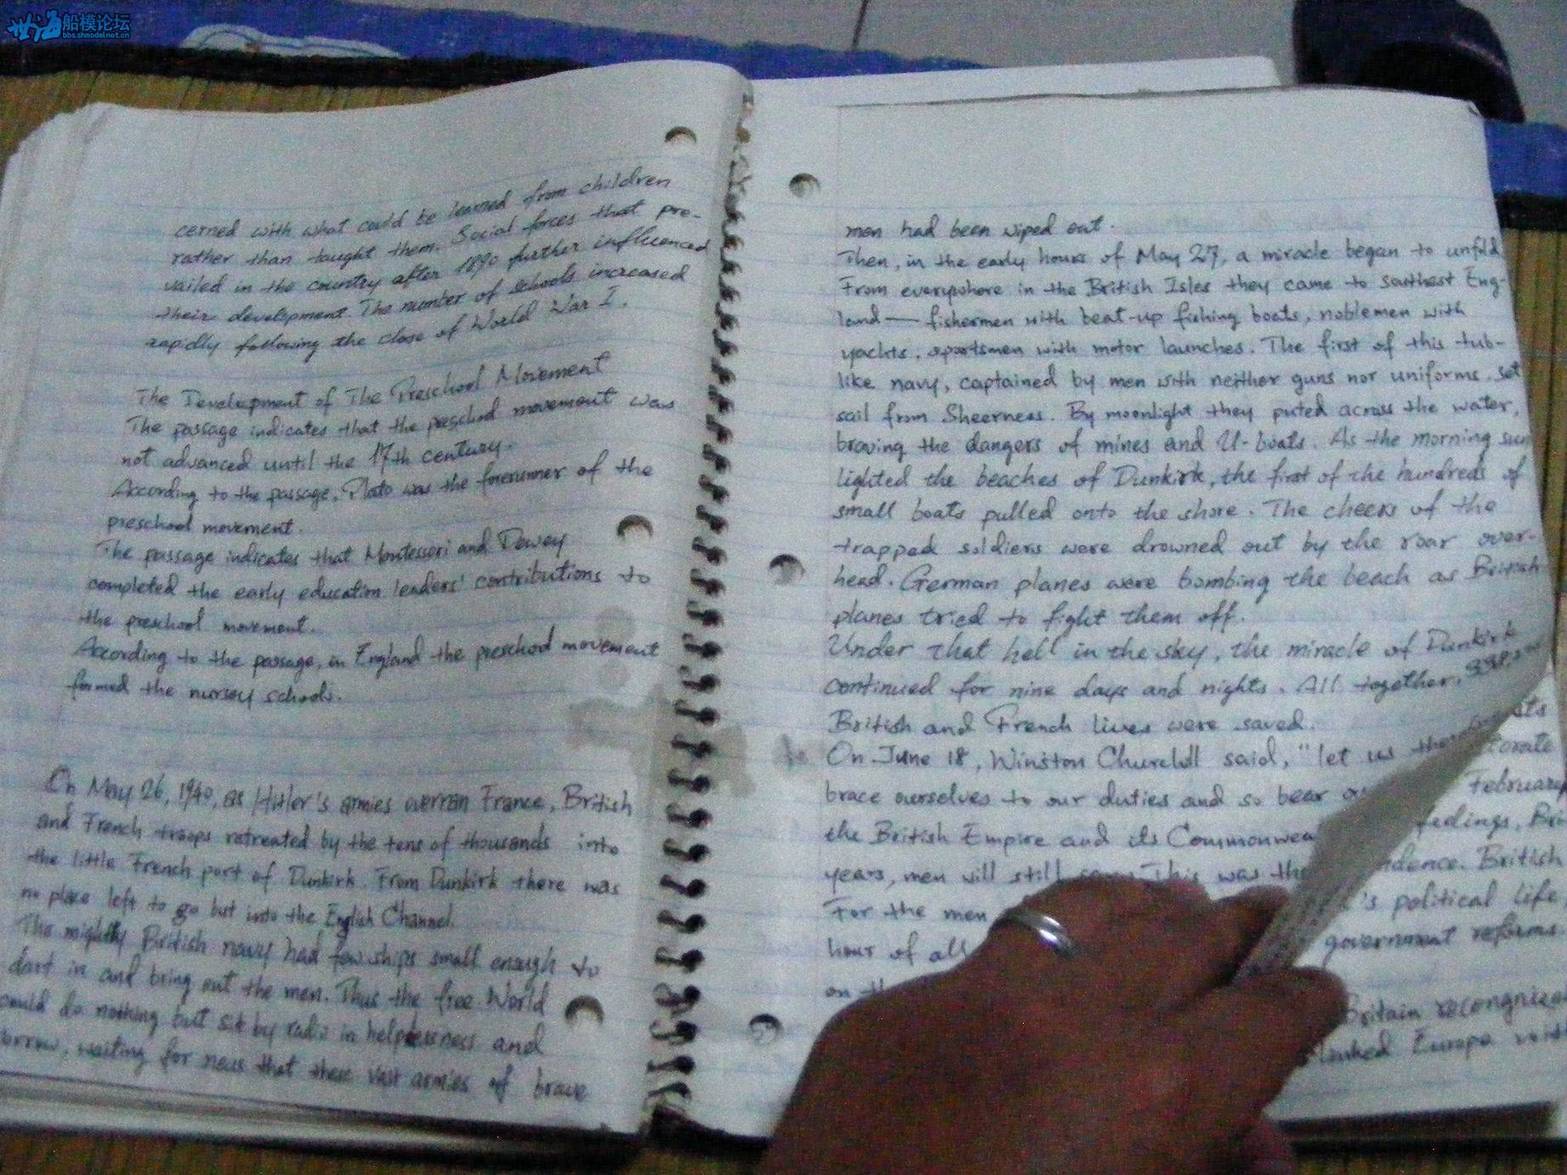 船模论坛
bbs.shmodel.net.cn
cerned with what could be learned from children
rather than taught them. Social forces that pre-
vailed in the country after 1890 further influenced
their development. The number of schools increased
rapidly following the close of World War I.
The Development of The Preschool Movement
The passage indicates that the preschool movement was
not advanced until the 17th century.
According to the passage, Plato was the forerunner of the
preschool movement.
The passage indicates that Montessori and Dewey
completed the early education leaders' contributions to
the preschool movement.
According to the passage, in England the preschool movement
formed the nursey schools.
On May 26, 1940, as Hitler's armies overran France, British
and French troops retreated by the tens of thousands into
the little French port of Dunkirk. From Dunkirk there was
no place left to go but into the English Channel.
The mightly British navy had few ships small enough to
dart in and bring out the men. Thus the free World
could do nothing but sit by radio in helplessness and
orrow, waiting for news that these vast armies of brave
men had been wiped out.
Then, in the early hours of May 27, a miracle began to unfold
From everywhere in the British Isles they came to southest Eng-
land — fishermen with beat-up fishing boats, noblemen with
yachts, sportsmen with motor launches. The first of this tub-
like navy, captained by men with neither guns nor uniforms, set
sail from Sheerness. By moonlight they puted across the water,
braving the dangers of mines and U-boats. As the morning sun
lighted the beaches of Dunkirk, the first of the hundreds of
small boats pulled onto the shore. The cheers of the
trapped soldiers were drowned out by the roar over-
head. German planes were bombing the beach as British
planes tried to fight them off.
Under that hell in the sky, the miracle of Dunkirk
continued for nine days and nights. All together,
British and French lives were saved.
On June 18, Winston Churchill said, "let us
brace ourselves to our duties and so bear
the British Empire and its Commonwea
years, men will still This was the
For the men
hour of all
on
February
feelings, Bri
British
's political life
government reforms.
Britain recongnize
Europe